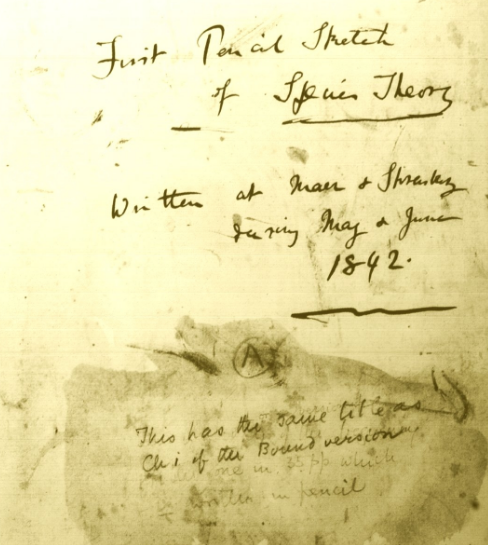 First Pencil Sketch
of Species Theory
Written at Maer & Shrewsbury
during May & June
1842.
A
This has the same title as
Ch. i of the Bound version
one in 35 pp which
written in pencil